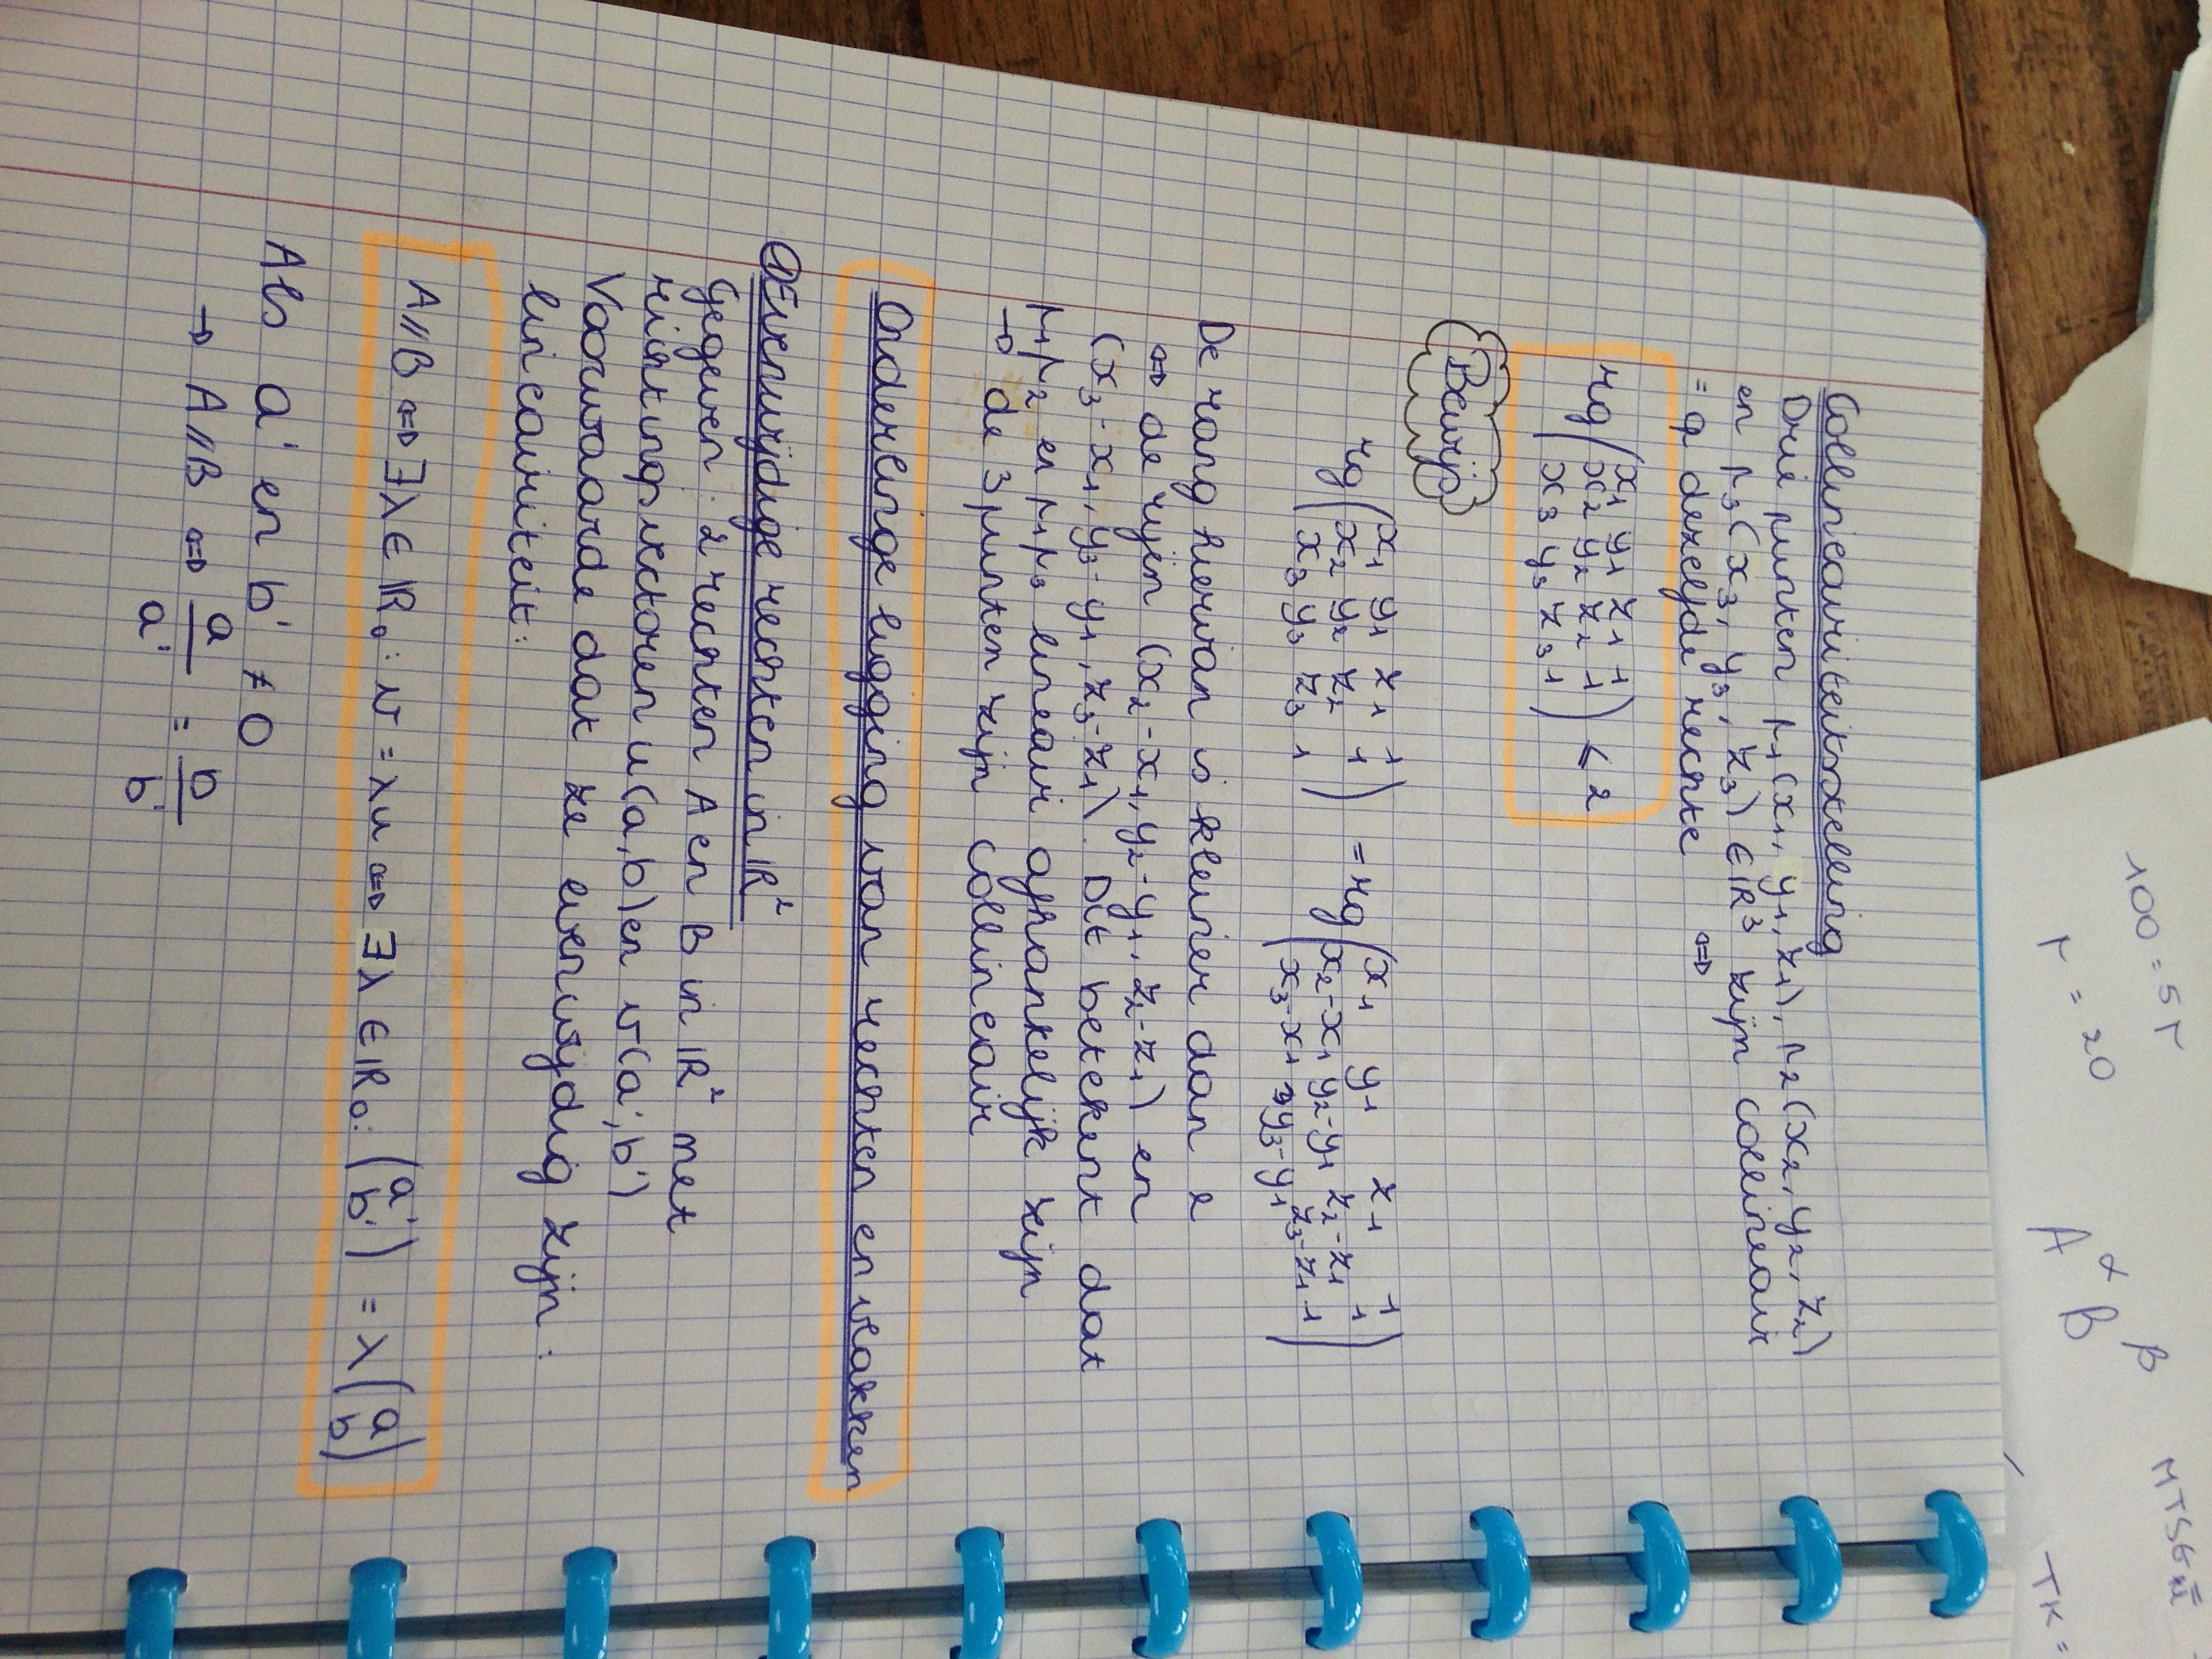 Collineariteitsstelling
Drie punten p₁(x₁, y₁, z₁), p₂(x₂, y₂, z₂)
en p₃(x₃, y₃, z₃) ∈ ℝ³ zijn collineair
= op dezelfde rechte ⇔
rg(x₁ y₁ z₁ 1
x₂ y₂ z₂ 1
x₃ y₃ z₃ 1) ≤ 2
Bewijs
rg(x₁ y₁ z₁ 1
x₂ y₂ z₂ 1
x₃ y₃ z₃ 1) = rg(x₁ y₁ z₁ 1
x₂-x₁ y₂-y₁ z₂-z₁ 1
x₃-x₁ y₃-y₁ z₃-z₁ 1)
De rang hiervan is kleiner dan 2
⇔ de rijen (x₂-x₁, y₂-y₁, z₂-z₁) en
(x₃-x₁, y₃-y₁, z₃-z₁). Dit betekent dat
p₁p₂ en p₁p₃ lineair afhankelijk zijn
→ de 3 punten zijn collineair
Onderlinge ligging van rechten en vlakken
① Evenwijdige rechten in ℝ²
Gegeven: 2 rechten A en B in ℝ² met
richtingsvectoren u(a,b) en v(a',b')
Voorwaarde dat ze evenwijdig zijn:
lineairiteit:
A//B ⇔ ∃λ ∈ ℝ₀: v = λu ⇔ ∃λ ∈ ℝ₀: (a'
b') = λ(a
b)
Als a' en b' ≠ 0
→ A//B ⇔ a/a' = b/b'
100 = 5r
r = 20
α β
A B
TK =